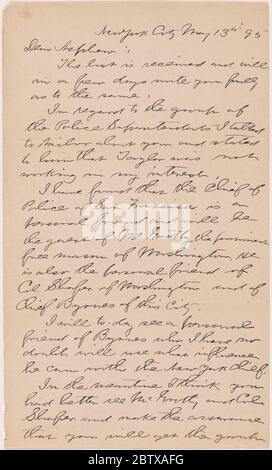 New York City May 13th 95
Dear Nephew:
The list is received and will
in a few days write you fully
as to the same.
In regard to the group of
the Police Superintendents I talked
to Naylor about you and
to learn that Taylor was not
working in my interest.
I have found that the Chief of
Police of San Francisco is an
personal friend and will be
the guest of the prominent
free mason of Washington. He
is also the personal friend of
Col Shafer of Washington and of
Chief Byrnes of this City.
I will to-day see a personal
friend of Byrnes who I have no
doubt will use what influence
he can with the New York Chief.
In the meantime I think you
had better see Mr. and Col
Shafer and make the assurance
that you will get the group
alamy
Image ID: 2BTXAFG
www.alamy.com